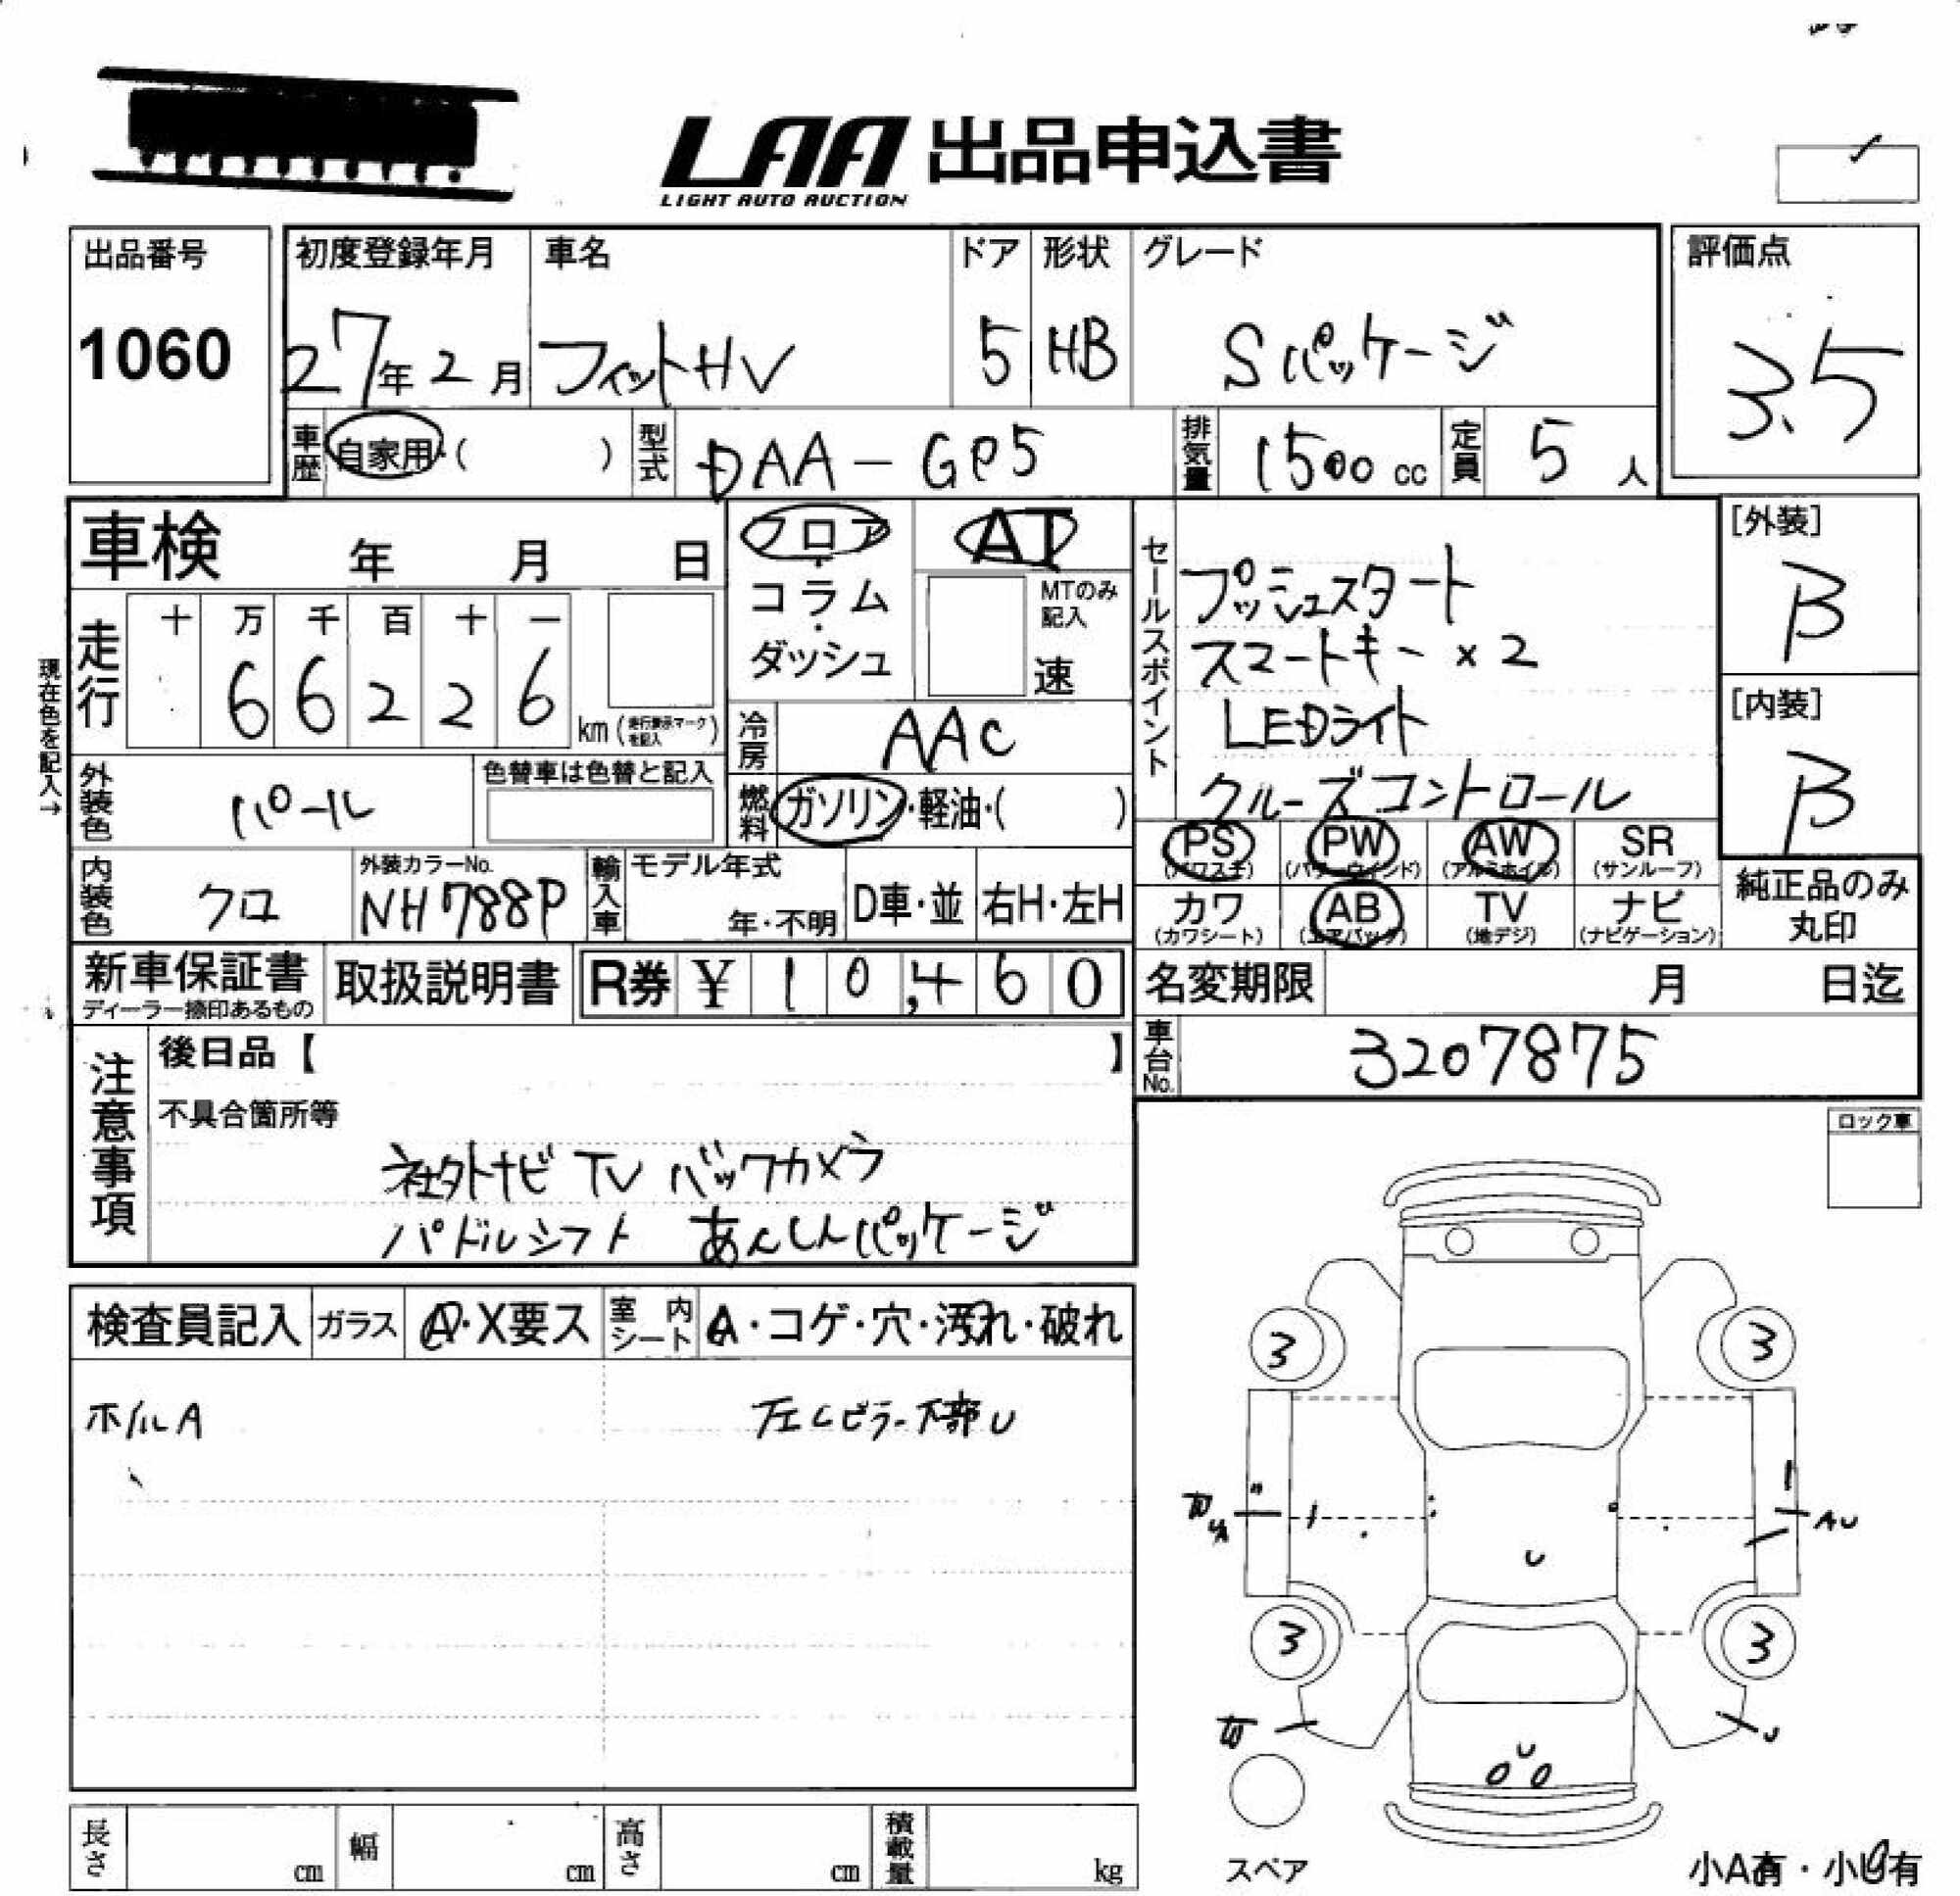 LAA 出品申込書
LIGHT AUTO AUCTION
出品番号
1060
初度登録年月
27年2月
車名
フィットHV
ドア
5
形状
HB
グレード
Sパッケージ
評価点
3.5
車歴 自家用・( )
型式 DAA-GP5
排気量 1500cc
定員 5人
車検 年 月 日
フロア・コラム・ダッシュ
AT
MTのみ記入
速
セールスポイント
プッシュスタート
スマートキー×2
LEDライト
クルーズコントロール
[外装]
B
[内装]
B
現在色を記入→
走行 十 万 千 百 十 一
66226 km(走行表示マークを記入)
冷房 AAC
外装色 パール
色替車は色替と記入
燃料 ガソリン・軽油・( )
PS (パワステ) PW (パワーウインド) AW (アルミホイル) SR (サンルーフ)
カワ (カワシート) AB (エアバック) TV (地デジ) ナビ (ナビゲーション)
純正品のみ丸印
内装色 クロ
外装カラーNo.
NH788P
輸入車 モデル年式
年・不明 D車・並 右H・左H
新車保証書
ディーラー捺印あるもの
取扱説明書
R券 ¥ 10,460
名変期限 月 日迄
車台No. 3207875
注意事項
後日品【 】
不具合箇所等
社外ナビ TV バックカメラ
パドルシフト あんしんパッケージ
ロック車
検査員記入 ガラス A・X要ス 室内シート A・コゲ・穴・汚れ・破れ
ホイルA
左Cピラー下部U
3 3
AU
U
3 3
U
U
スペア
小A有・小U有
長さ cm 幅 cm 高さ cm 積載量 kg